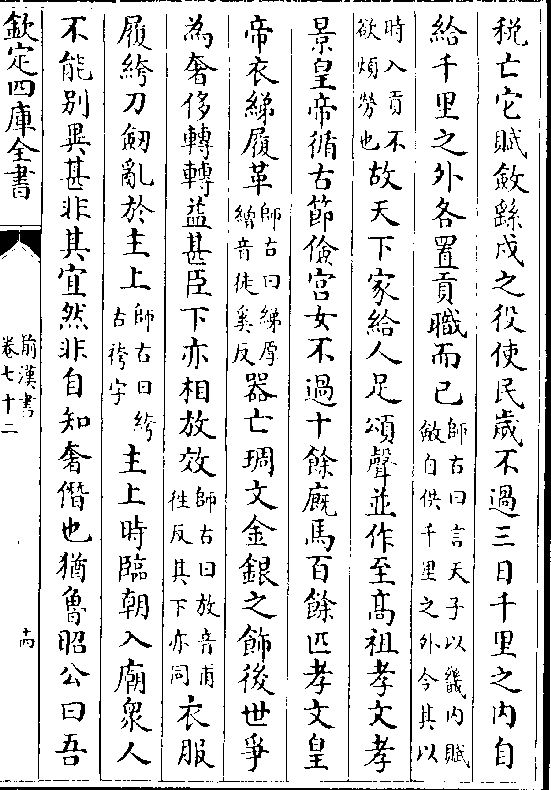 稅亡它賦斂繇戍之役使民歲不過三日千里之内自
給千里之外各置貢職而已師古曰言天子以畿内賦斂自供千里之外今其以
時入貢不欲煩勞也故天下家給人足頌聲並作至高祖孝文孝
景皇帝循古節儉宫女不過十餘廐馬百餘匹孝文皇
帝衣綈履革師古曰綈厚繒音徒奚反器亡琱文金銀之飾後世爭
為奢侈轉轉益甚臣下亦相放效師古曰放音甫往反其下亦同衣服
履絝刀劒亂於主上師古曰絝古袴字主上時臨朝入廟衆人
不能别異甚非其宜然非自知奢僭也猶魯昭公曰吾
欽定四庫全書
前漢書
卷七十二